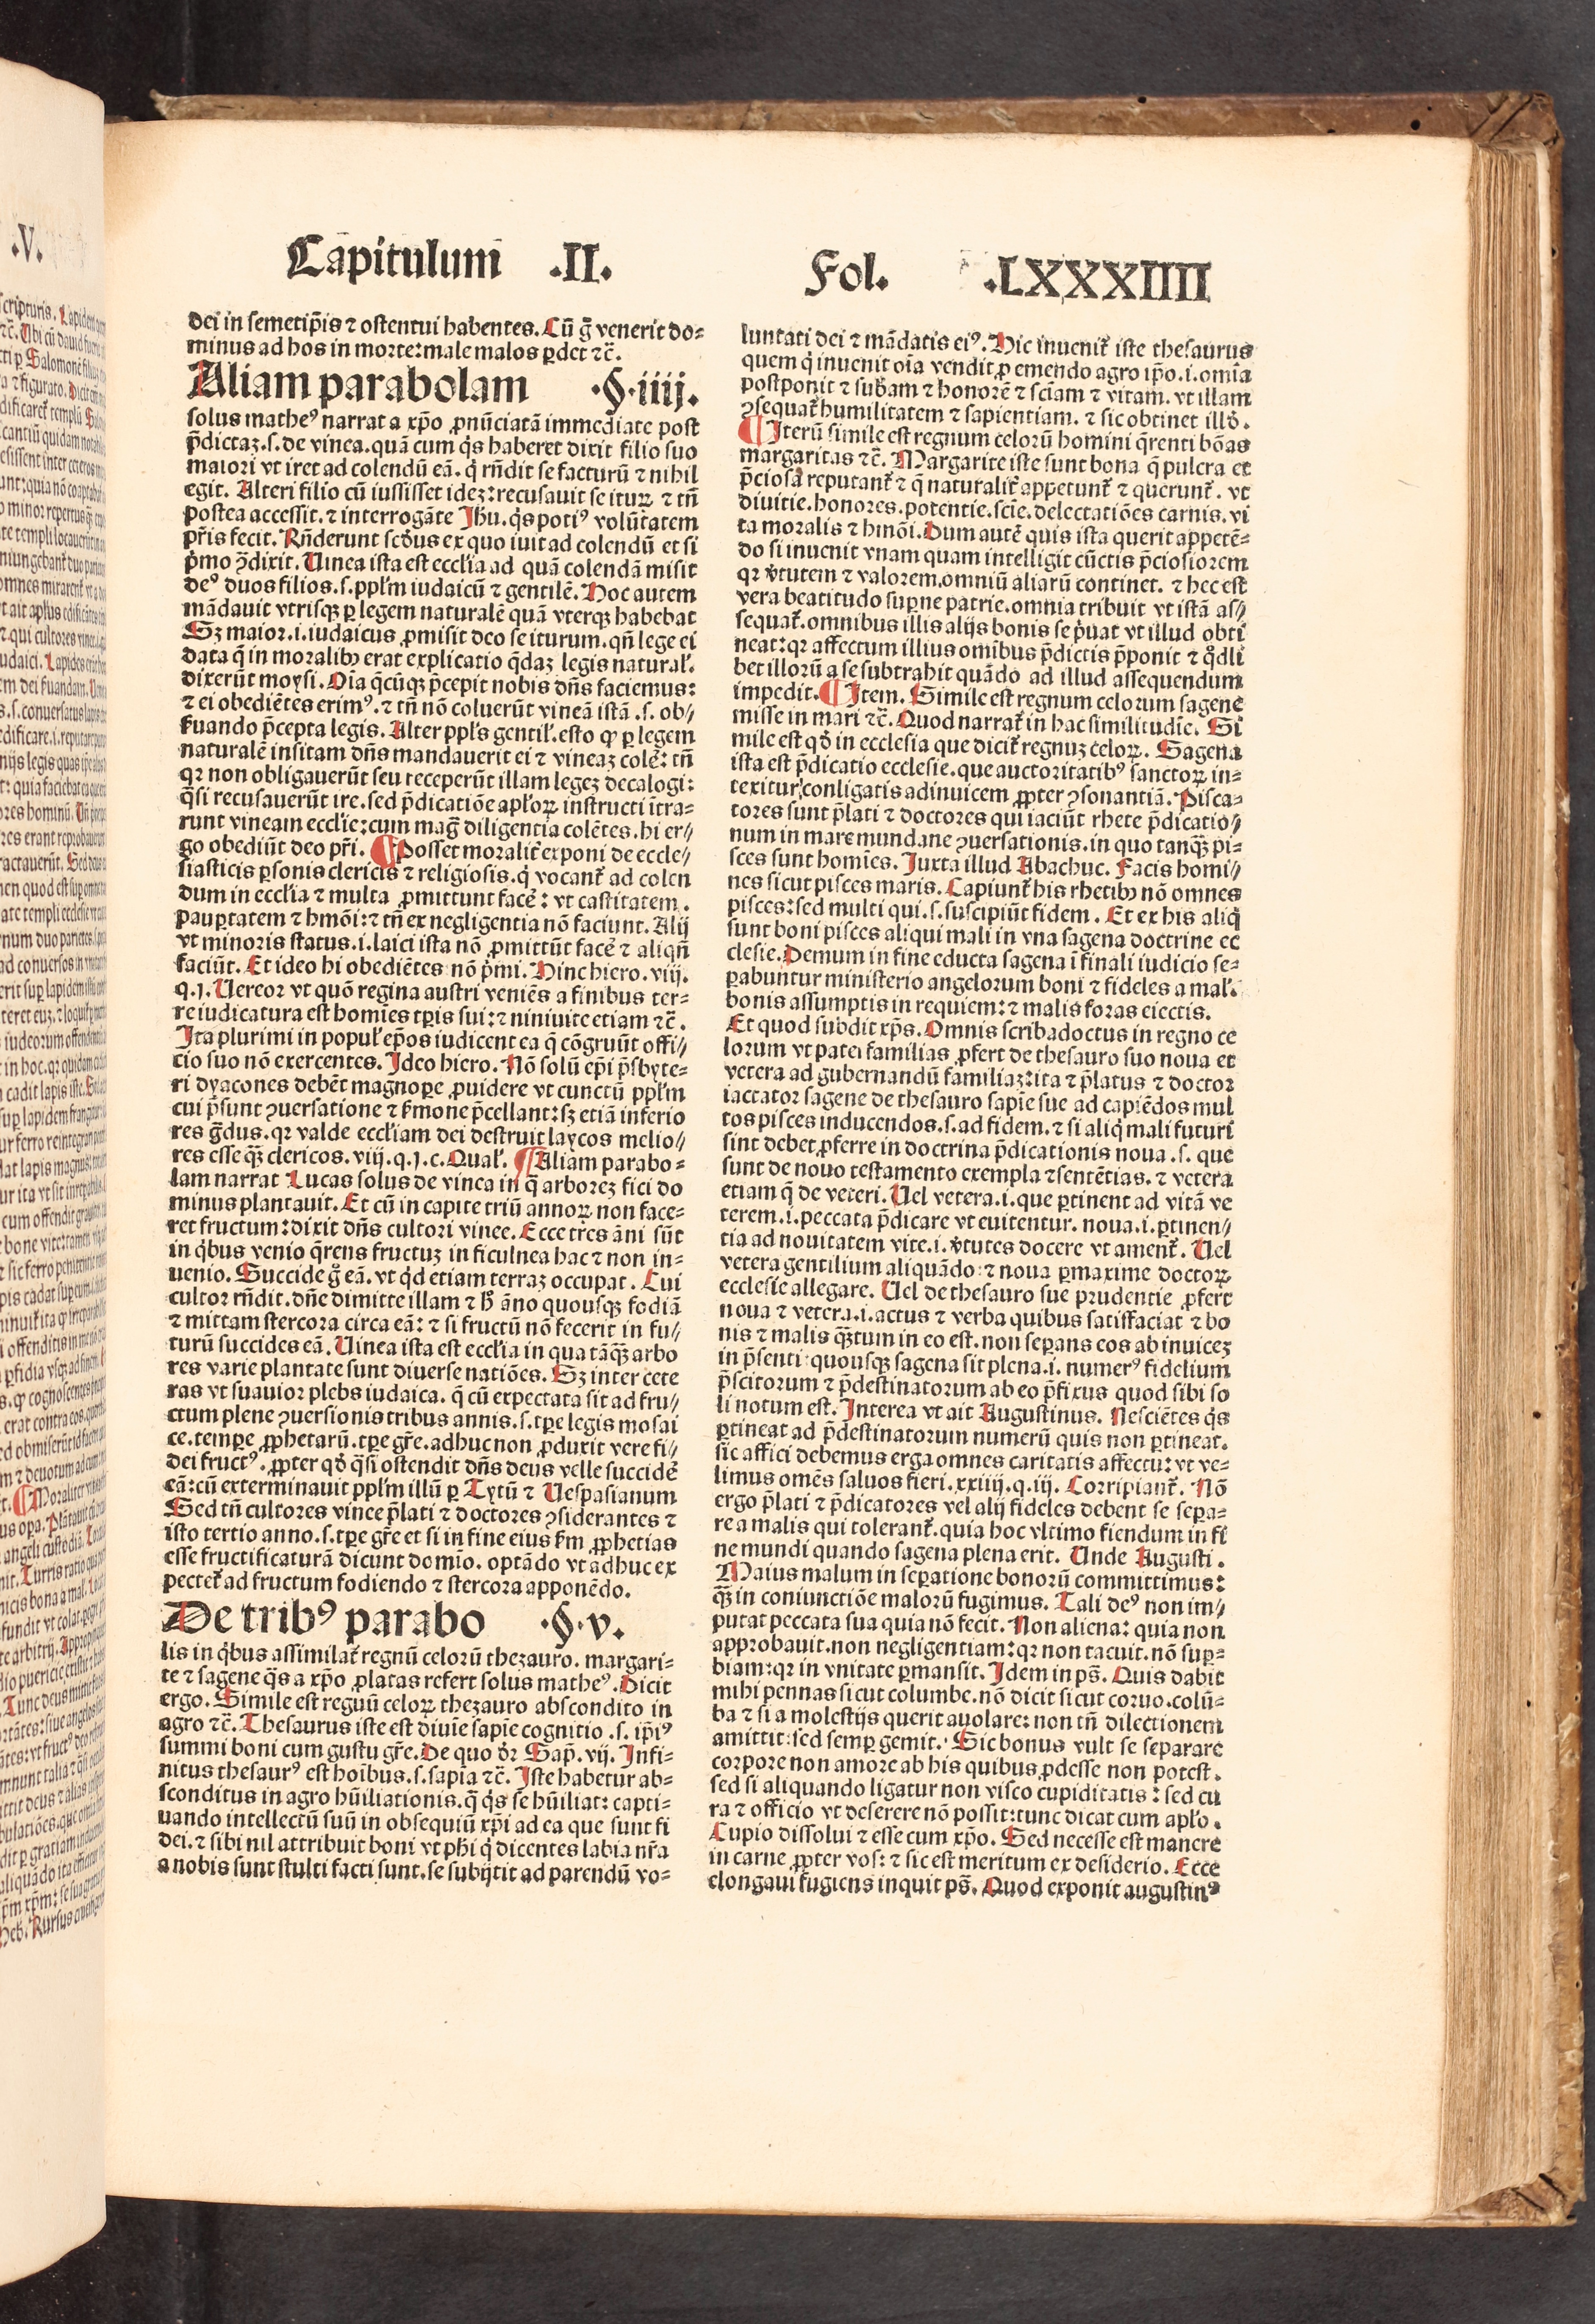 Capitulum .II.
Fol. .LXXXIIII
dei in semetip̄is ⁊ ostentui habentes. Cū g̊ venerit do⸗
minus ad hos in morte: male malos ꝑdet ⁊c̄.
Aliam parabolam .§.iiij.
solus matheꝰ narrat a xp̄o ꝓnūciatā immediate post
p̄dictaz .s. de vinea. quā cum q̇s haberet dixit filio suo
maiori vt iret ad colendū eā. q̇ rn̄dit se facturū ⁊ nihil
egit. Alteri filio cū iussisset idez: recusauit se iturꝝ ⁊ tn̄
postea accessit. ⁊ interrogāte Jhu. q̇s potiꝰ volūtatem
pr̄is fecit. Rn̄derunt scd̄us ex quo iuit ad colendū et si
ṗmo ꝯdixit. Uinea ista est eccl̄ia ad quā colendā misit
deꝰ duos filios .s. ppl̄m iudaicū ⁊ gentilē. Hoc autem
mādauit vtrisqꝫ ꝑ legem naturalē quā vterqꝫ habebat
Sꝫ maior .i. iudaicus ꝓmisit deo se iturum. qn̄ lege ei
data q̄ in moralibꝫ erat explicatio q̄daz legis natural̕.
dixerūt moysi. Oīa q̄cūqꝫ p̄cepit nobis dn̄s faciemus:
⁊ ei obediētes erimꝰ. ⁊ tn̄ nō coluerūt vineā istā .s. ob⸗
ẜuando p̄cepta legis. Alter ppl̄s gentil̕. esto ꝙ ꝑ legem
naturalē insitam dn̄s mandauerit ei ⁊ vineaz colē̕: tn̄
qꝛ non obligauerūt seu receperūt illam legez decalogi:
q̄si recusauerūt ire. sed p̄dicatiōe apl̄oꝝ instructi ītra⸗
runt vineam eccl̄ie: cum maḡ diligentia colētes. hi er⸗
go obediūt deo pr̄i. ¶ Posset moralit̕ exponi de eccle⸗
siasticis ꝑsonis clericis ⁊ religiosis. q̇ vocant̕ ad colen
dum in eccl̄ia ⁊ multa ꝓmittunt facē̕: vt castitatem.
pauꝑtatem ⁊ hmōi: ⁊ tn̄ ex negligentia nō faciunt. Alij
vt minoris status .i. laici ista nō ꝓmittūt facē̕ ⁊ aliqn̄
faciūt. Et ideo hi obediētes nō ṗmi. Hinc hiero. viij.
q.j. Uereor vt quō regina austri veniēs a finibus ter⸗
re iudicatura est homīes tꝑis sui: ⁊ niniuite etiam ⁊c̄.
Ita plurimi in popul̕ ep̄os iudicent ea q̄ cōgruūt offi⸗
cio suo nō exercentes. Ideo hiero. Nō solū ep̄i p̄sbyte⸗
ri dyacones debēt magnoꝑe ꝓuidere vt cunctū ppl̄m
cui p̄sunt ꝯuersatione ⁊ ẜmone p̄cellant: sꝫ etiā inferio
res g̊dus. qꝛ valde eccl̄iam dei destruit laycos melio⸗
res esse qꝫ̄ clericos. viij.q.j.c. Qual̕. ¶ Aliam parabo⸗
lam narrat Lucas solus de vinea in q̄ arborez fici do
minus plantauit. Et cū in capite triū annoꝝ non face⸗
ret fructum: dixit dn̄s cultori vinee. Ecce tres āni sūt
in q̇bus venio q̄rens fructuz in ficulnea hac ⁊ non in⸗
uenio. Succide g̊ eā. vt q̇d etiam terraz occupat. Cui
cultor rn̄dit. dn̄e dimitte illam ⁊ h̄ āno quousqꝫ fodiā
⁊ mittam stercora circa eā: ⁊ si fructū nō fecerit in fu⸗
turū succides eā. Uinea ista est eccl̄ia in qua tāqꝫ̄ arbo
res varie plantate sunt diuerse natiōes. Sꝫ inter cete
ras vt suauior plebs iudaica. q̄ cū expectata sit ad fru⸗
ctum plene ꝯuersionis tribus annis .s. tꝑe legis mosai
ce. tempe ꝓphetarū. tꝑe gr̄e. adhuc non ꝓduxit vere fi⸗
dei fructꝰ. ꝓpter qd̄ q̄si ostendit dn̄s deus velle succidē̕
eā: cū exterminauit ppl̄m illū ꝑ Tytū ⁊ Uespasianum
Sed tn̄ cultores vinee p̄lati ⁊ doctores ꝯsiderantes ⁊
isto tertio anno .s. tꝑe gr̄e et si in fine eius ẜm ꝓphetias
esse fructificaturā dicunt domio. optādo vt adhuc ex
pectet̕ ad fructum fodiendo ⁊ stercora apponēdo.
De tribꝰ parabo .§.v.
lis in q̇bus assimilat̕ regnū celorū thezauro. margari⸗
te ⁊ sagene q̄s a xp̄o ꝓlatas refert solus matheꝰ. Dicit
ergo. Simile est regnū celoꝝ thezauro abscondito in
agro ⁊c̄. Thesaurus iste est diuīe sapīe cognitio .s. ip̄iꝰ
summi boni cum gustu gr̄e. De quo dr̄ Sap̄. vij. Infi⸗
nitus thesaurꝰ est hoībus .s. sapīa ⁊c̄. Iste habetur ab⸗
sconditus in agro hūiliationis. q̄ q̇s se hūiliat: capti⸗
uando intellectū suū in obsequiū xp̄i ad ea que sunt fi
dei. ⁊ sibi nil attribuit boni vt ph̄i q̇ dicentes labia nr̄a
a nobis sunt stulti facti sunt. se subijcit ad parendū vo⸗
luntati dei ⁊ mādatis eiꝰ. Hic inuenit̕ iste thesaurus
quem q̇ inuenit oīa vendit ꝓ emendo agro ip̄o .i. omīa
postponit ⁊ sub̄am ⁊ honorē ⁊ scīam ⁊ vitam. vt illam
ꝯsequat̕ humilitatem ⁊ sapientiam. ⁊ sic obtinet illd̄.
¶ Iterū simile est regnum celorū homini q̄renti bōas
margaritas ⁊c̄. Margarite iste sunt bona q̄ pulcra et
p̄ciosa reputant̕ ⁊ q̄ naturalit̕ appetunt̕ ⁊ querunt̕. vt
diuitie. honores. potentie. scīe. delectatiōes carnis. vi
ta moralis ⁊ hmōi. Dum autē quis ista querit appetē⸗
do si inuenit vnam quam intelligit cūctis p̄ciosiorem
qꝛ v̓tutem ⁊ valorem omniū aliarū continet. ⁊ hec est
vera beatitudo suꝑne patrie. omnia tribuit vt istā as⸗
sequat̕. omnibus illis alijs bonis se ṗuat vt illud obti
neat: qꝛ affectum illius omībus p̄dictis p̄ponit ⁊ qd̄li
bet illorū a se subtrahit quādo ad illud assequendum
impedit. ¶ Item. Simile est regnum celorum sagene
misse in mari ⁊c̄. Quod narrat̕ in hac similitudīe. Si
mile est qd̄ in ecclesia que dicit̕ regnuz celoꝝ. Sagena
ista est p̄dicatio ecclesie. que auctoritatibꝰ sanctoꝝ in⸗
texitur conligatis adinuicem ꝓpter ꝯsonantiā. Pisca⸗
tores sunt p̄lati ⁊ doctores qui iaciūt rhete p̄dicatio⸗
num in mare mundane ꝯuersationis. in quo tanqꝫ̄ pi⸗
sces sunt homīes. Juxta illud Abachuc. Facis homi⸗
nes sicut pisces maris. Capiunt̕ his rhetibꝫ nō omnes
pisces: sed multi qui .s. suscipiūt fidem. Et ex his aliq̇
sunt boni pisces aliqui mali in vna sagena doctrine ec
clesie. Demum in fine educta sagena ī finali iudicio se⸗
ꝑabuntur ministerio angelorum boni ⁊ fideles a mal̕.
bonis assumptis in requiem: ⁊ malis foras eiectis.
Et quod subdit xp̄s. Omnis scriba doctus in regno ce
lorum vt pater familias ꝓfert de thesauro suo noua et
vetera ad gubernandū familiaz: ita ⁊ p̄latus ⁊ doctor
iactator sagene de thesauro sapīe sue ad capiēdos mul
tos pisces inducendos .s. ad fidem. ⁊ si aliq̇ mali futuri
sint debet ꝓferre in doctrina p̄dicationis noua .s. que
sunt de nouo testamento exempla ⁊ sentētias. ⁊ vetera
etiam q̄ de veteri. Uel vetera .i. que ꝑtinent ad vitā ve
terem .i. peccata p̄dicare vt euitentur. noua .i. ꝑtinen⸗
tia ad nouitatem vite .i. v̓tutes docere vt ament̕. Uel
vetera gentilium aliquādo ⁊ noua ꝑmaxime doctoꝝ
ecclesie allegare. Uel de thesauro sue prudentie ꝓfert
noua ⁊ vetera .i. actus ⁊ verba quibus satiffaciat ⁊ bo
nis ⁊ malis qꝫ̄tum in eo est. non seꝑans eos ab inuicez
in p̄senti quousqꝫ sagena sit plena .i. numerꝰ fidelium
p̄scitorum ⁊ p̄destinatorum ab eo p̄fixus quod sibi so
li notum est. Interea vt ait Augustinus. Nesciētes q̇s
ꝑtineat ad p̄destinatorum numerū quis non ꝑtineat.
sic affici debemus erga omnes caritatis affectu: vt ve⸗
limus omēs saluos fieri. xxiiij.q.iij. Corripiant̕. Nō
ergo p̄lati ⁊ p̄dicatores vel alij fideles debent se seꝑa⸗
re a malis qui tolerant̕. quia hoc vltimo fiendum in fi
ne mundi quando sagena plena erit. Unde Augusti.
Maius malum in seꝑatione bonorū committimus:
qꝫ̄ in coniunctiōe malorū fugimus. Tali deꝰ non im⸗
putat peccata sua quia nō fecit. Non aliena: quia non
approbauit. non negligentiam: qꝛ non tacuit. nō suꝑ⸗
biam: qꝛ in vnitate ꝑmansit. Idem in ps̄. Quis dabit
mihi pennas sicut columbe. nō dicit sicut coruo. colū⸗
ba ⁊ si a molestijs querit auolare: non tn̄ dilectionem
amittit: sed semꝑ gemit. Sic bonus vult se separare
corpore non amore ab his quibus ꝓdesse non potest.
sed si aliquando ligatur non visco cupiditatis: sed cu
ra ⁊ officio vt deserere nō possit: tunc dicat cum apl̄o.
Cupio dissolui ⁊ esse cum xp̄o. Sed necesse est manere
in carne ꝓpter vos: ⁊ sic est meritum ex desiderio. Ecce
elongaui fugiens inquit ps̄. Quod exponit augustinꝰ